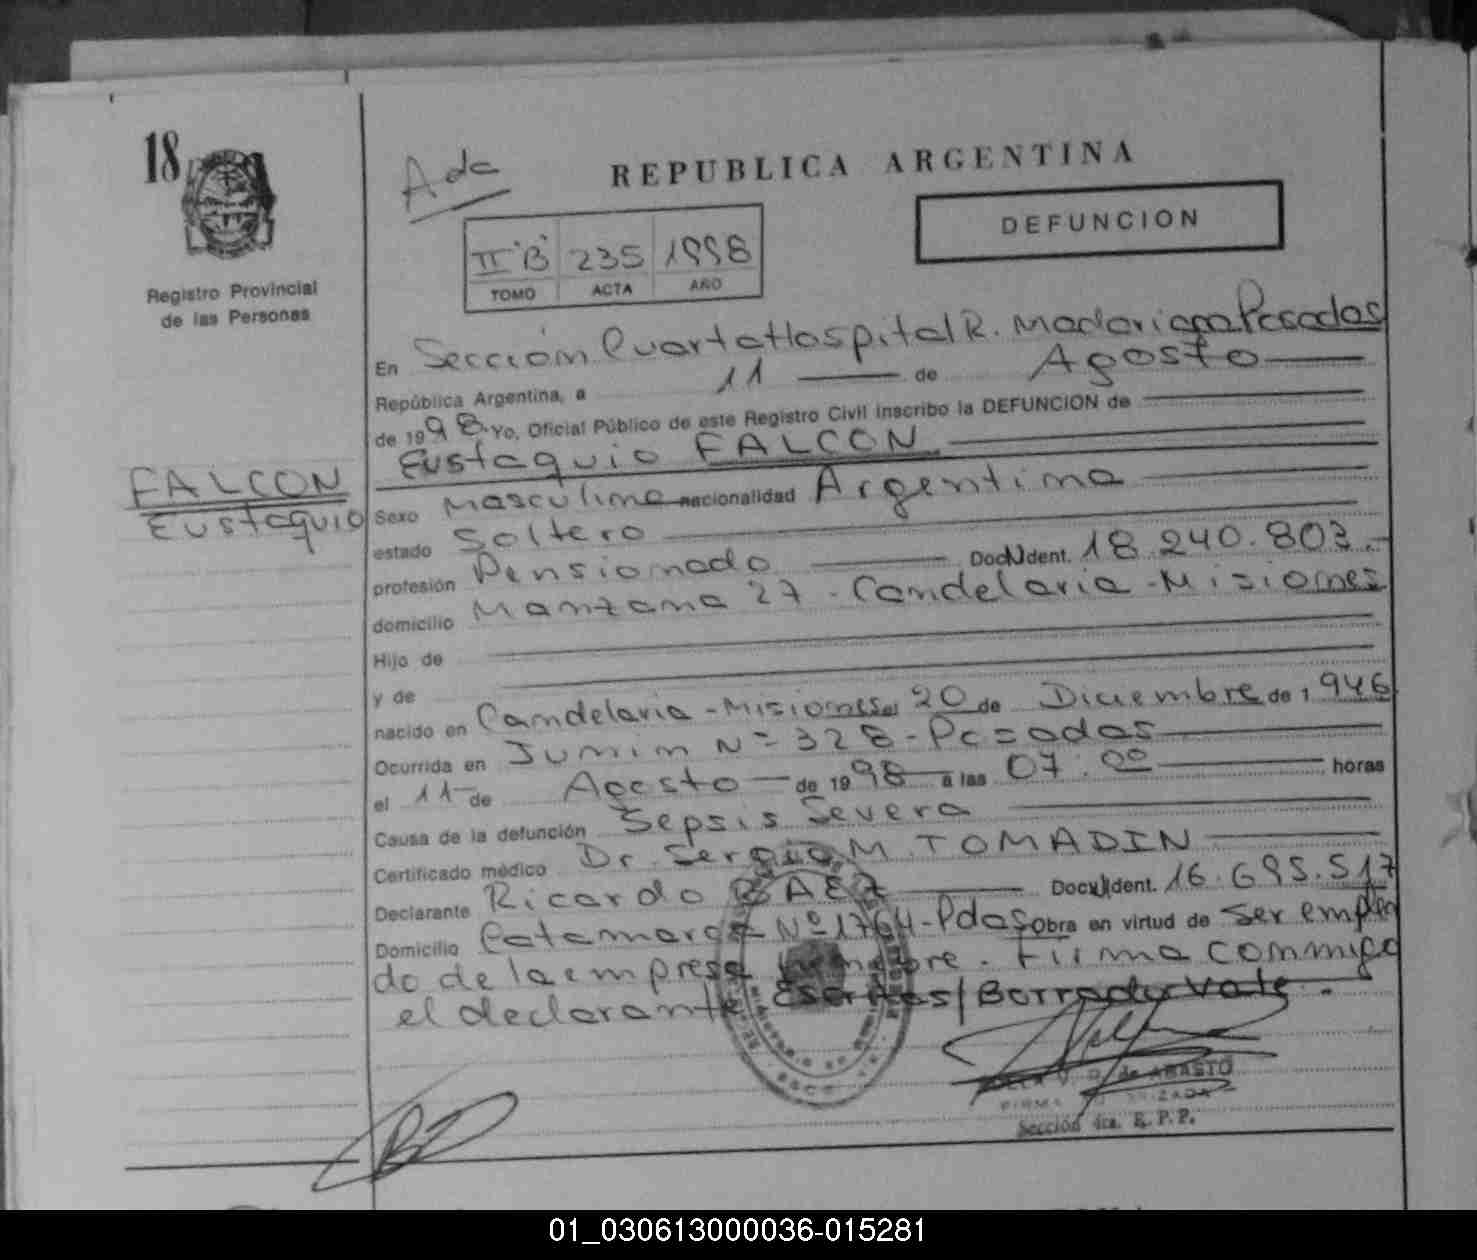 18
Registro Provincial
de las Personas
FALCON
Eustaquio
Ada
REPUBLICA ARGENTINA
DEFUNCION
II "B" 235 1998
TOMO ACTA AÑO
En Sección Cuarta Hospital R. Madariaga Posadas
República Argentina, a 11 de Agosto
de 1998. Yo, Oficial Público de este Registro Civil inscribo la DEFUNCION de
Eustaquio FALCON
Sexo Masculino nacionalidad Argentina
estado Soltero
profesión Pensionado Doc. Ident. 18.240.803.-
domicilio Manzana 27 - Candelaria - Misiones
Hijo de
y de
nacido en Candelaria - Misiones el 20 de Diciembre de 1946
Ocurrida en Junin Nº 328 - Posadas
el 11 de Agosto de 1998 a las 07:00 horas
Causa de la defunción Sepsis Severa
Certificado médico Dr. Sergio M. TOMADIN
Declarante Ricardo BAEZ Doc. Ident. 16.695.517
Domicilio Catamarca Nº 1764 - Pdas Obra en virtud de ser emplea
do de la empresa funebre. Firma conmigo
el declarante
V. D. de ABASTO
Sección 4ta. R. P. P.
01_030613000036-015281